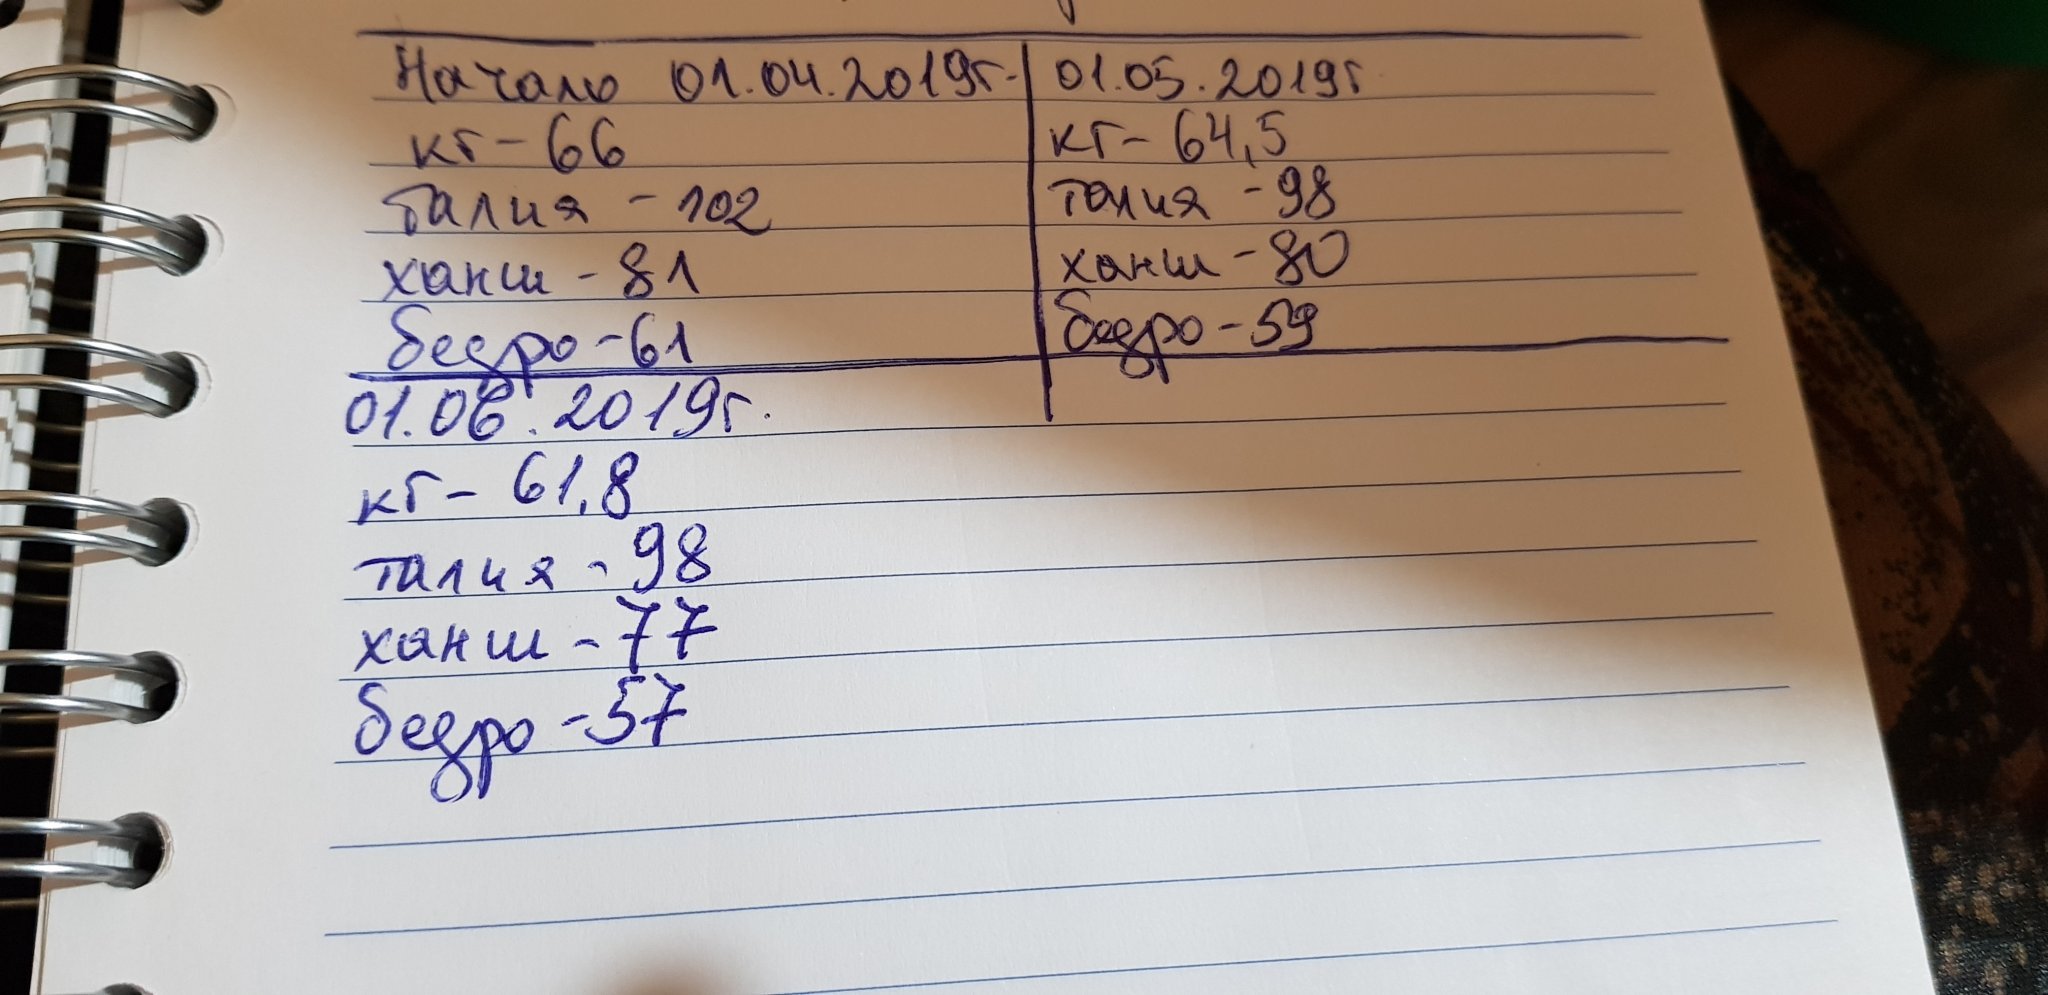 Начало 01.04.2019г.
кг-66
талия - 102
ханш - 81
бедро - 61
01.05.2019г
кг- 64,5
талия - 98
ханш - 80
бедро - 59
01.06.2019г.
кг - 61,8
талия - 98
ханш - 77
бедро - 57